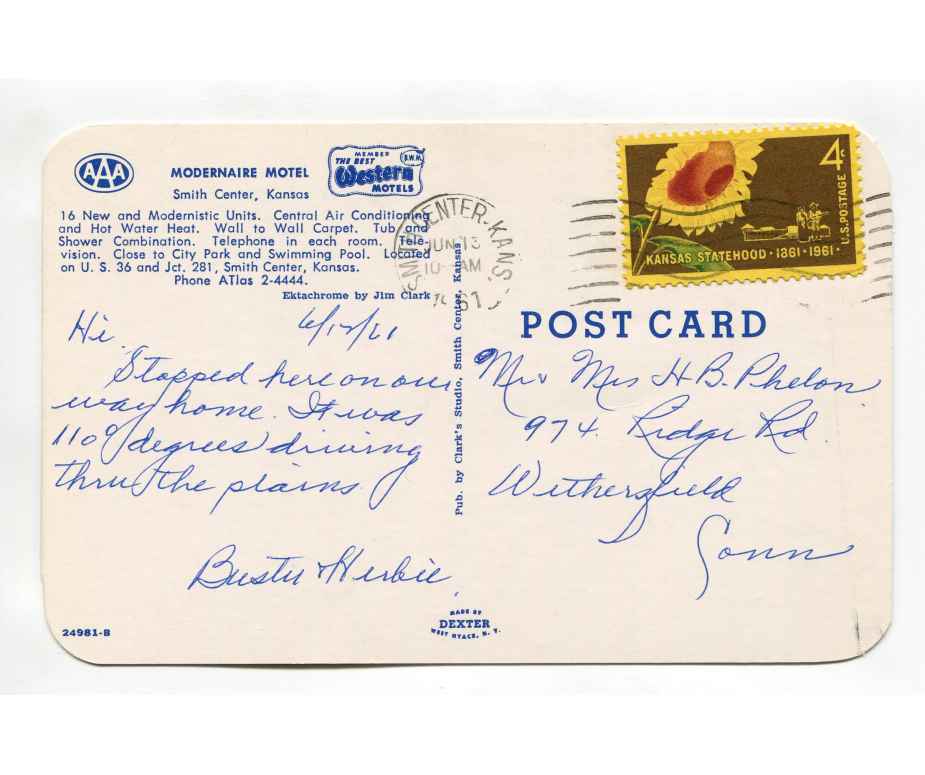 AAA
MODERNAIRE MOTEL
Smith Center, Kansas
MEMBER
B.W.M.
THE BEST
Western
MOTELS
16 New and Modernistic Units. Central Air Conditioning
and Hot Water Heat. Wall to Wall Carpet. Tub and
Shower Combination. Telephone in each room. Tele-
vision. Close to City Park and Swimming Pool. Located
on U. S. 36 and Jct. 281, Smith Center, Kansas.
Phone ATlas 2-4444.
Ektachrome by Jim Clark
SMITH CENTER, KANS.
JUN 13
AM
1961
4c
U.S. POSTAGE
KANSAS STATEHOOD · 1861-1961 ·
POST CARD
Hi 6/12/61
Stopped here on our
way home. It was
110° degrees driving
thru the plains.
Buster & Herbie
Pub. by Clark's Studio, Smith Center, Kansas
Mr Mrs H B. Phelon
974 Ridge Rd
Withersfield
Conn
24981-B
MADE BY
DEXTER
WEST NYACK, N. Y.